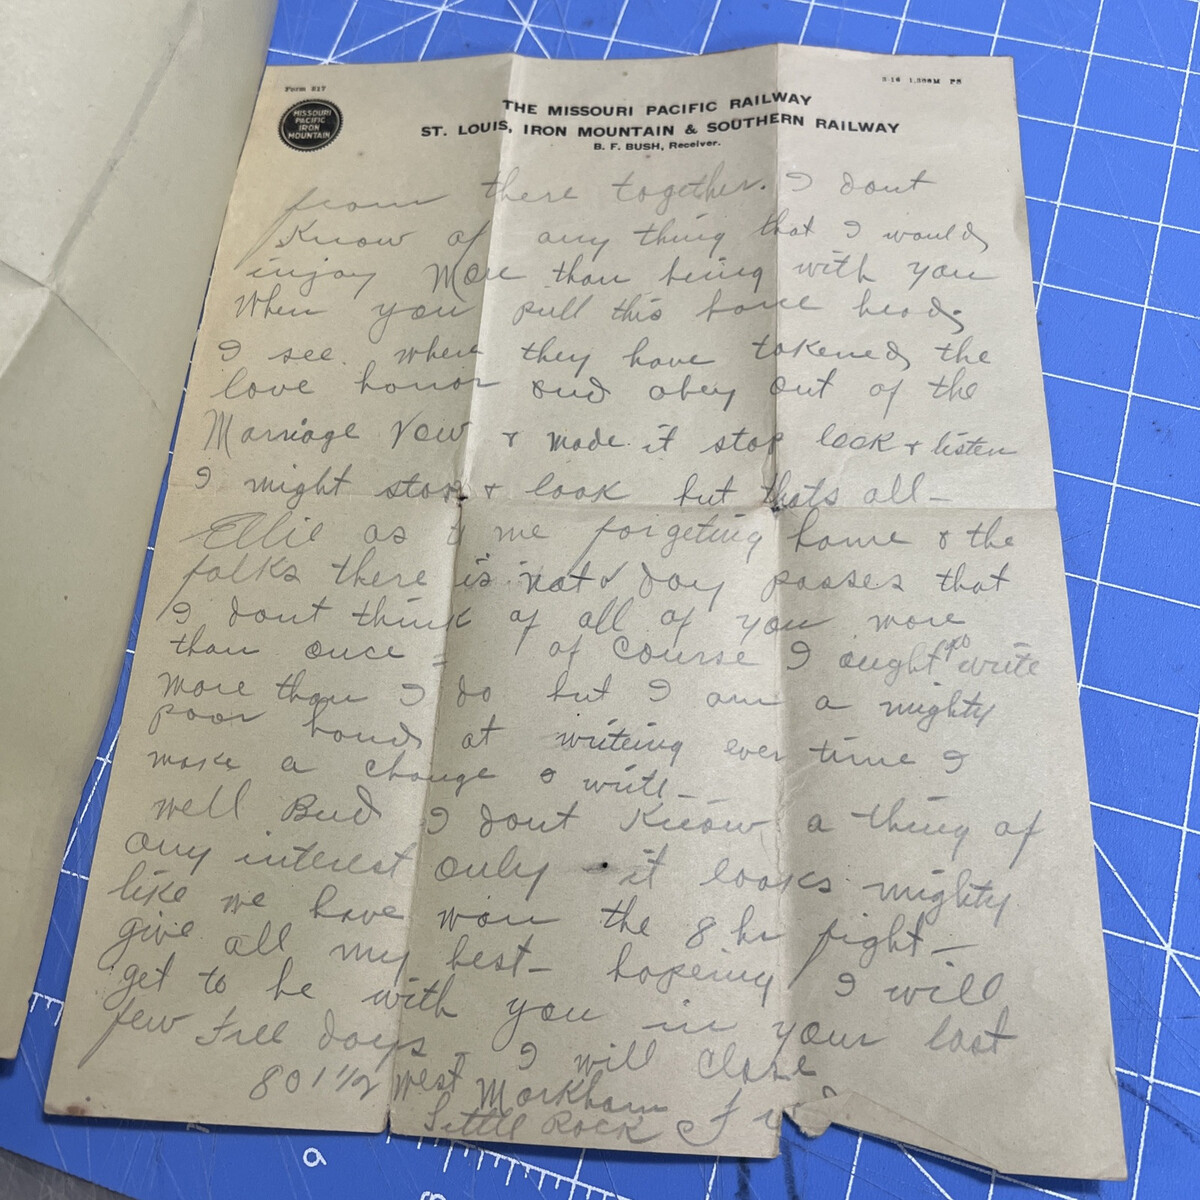 Form 217
2-16 1,500M PS
MISSOURI
PACIFIC
IRON
MOUNTAIN
THE MISSOURI PACIFIC RAILWAY
ST. LOUIS, IRON MOUNTAIN & SOUTHERN RAILWAY
B. F. BUSH, Receiver.
from there together. I dont
Know of any thing that I would
injoy More than being with you
When you pull this bone head
I see where they have takened the
love honor and obey out of the
Marriage Vow & made it stop look & listen
I might stop & look but thats all—
Ellie as to me forgeting home & the
folks there is not a day passes that
I dont think of all of you more
than once = of Course I ought to write
more than I do but I am a mighty
poor hand at writeing ever time I
make a change I write—
well Bud I dont Know a thing of
any interest only it looks mighty
like we have won the 8 hr fight—
give all my best— hopeing I will
get to be with you in your last
few free days — I will close
801 1/2 West Markham
Little Rock